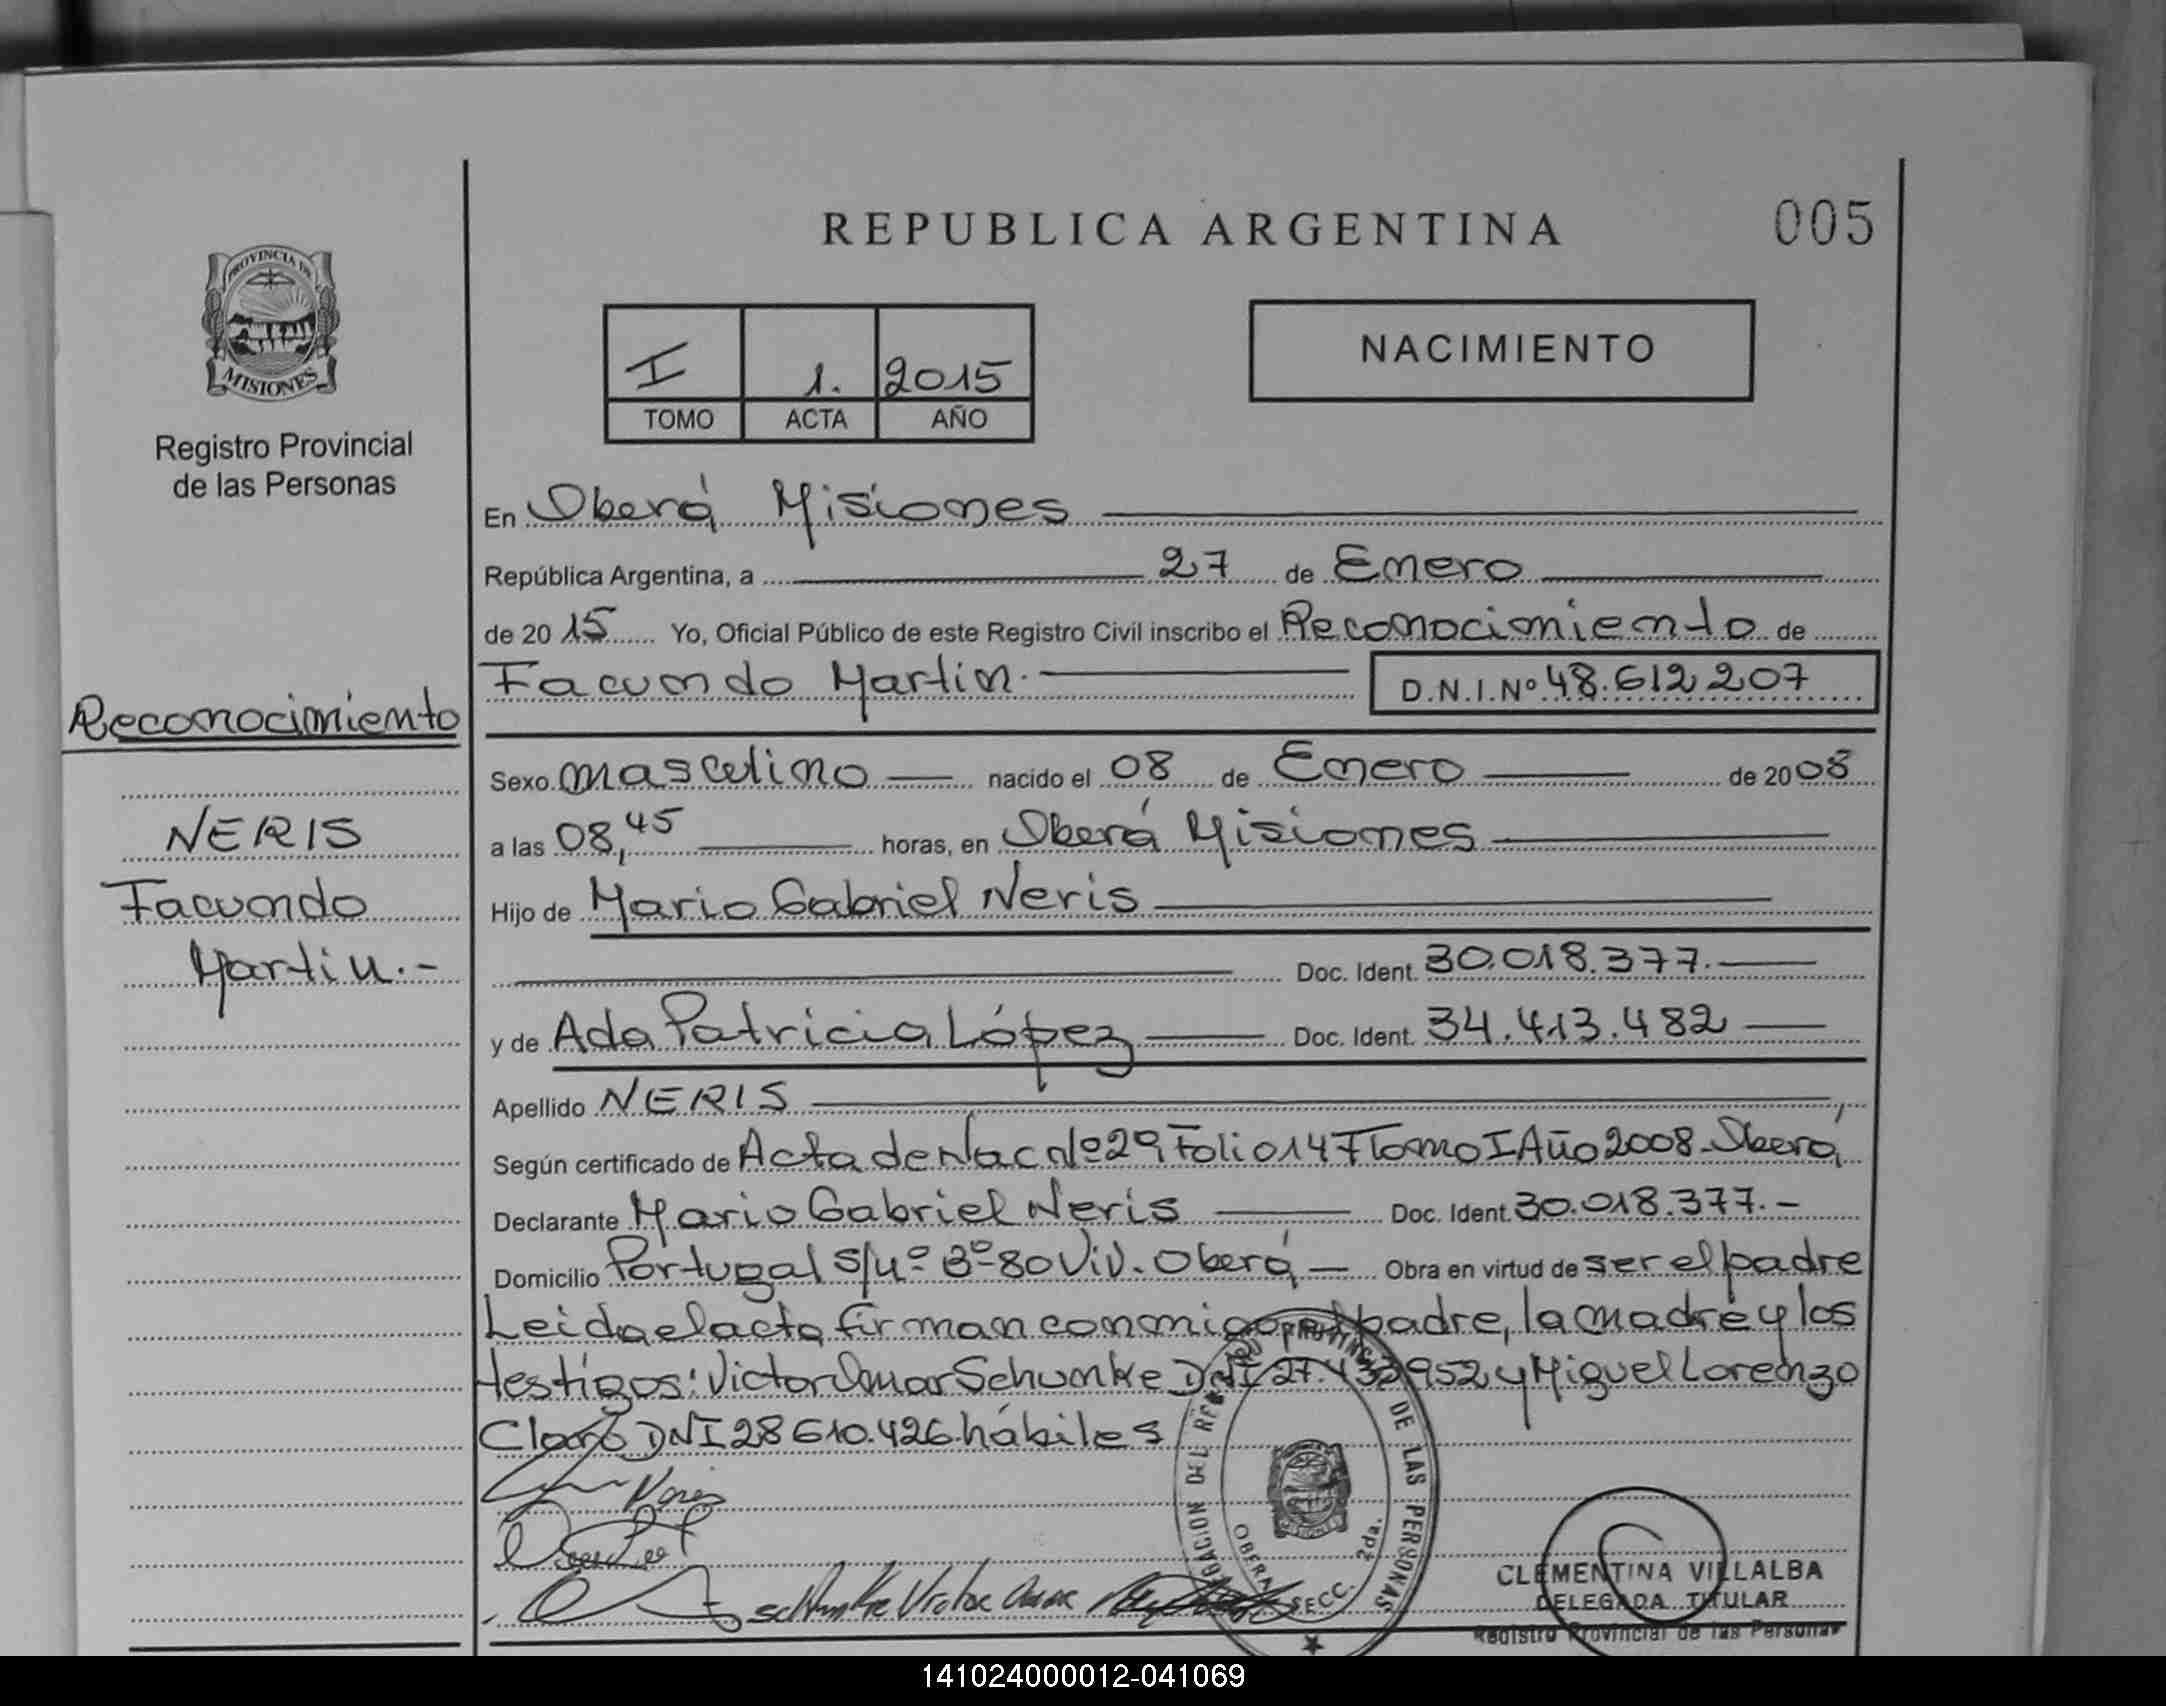 REPUBLICA ARGENTINA
005
PROVINCIA DE
MISIONES
Registro Provincial
de las Personas
NACIMIENTO
I 1. 2015
TOMO ACTA AÑO
En Oberá Misiones
República Argentina, a 27 de Enero
de 20 15 Yo, Oficial Público de este Registro Civil inscribo el Reconocimiento de
Facundo Martin. D.N.I.Nº 48.612207
Reconocimiento
NERIS
Facundo
Martin.-
Sexo masculino nacido el 08 de Enero de 20 08
a las 08,45 horas, en Oberá Misiones
Hijo de Mario Gabriel Neris
Doc. Ident. 30.018.377.
y de Ada Patricia López Doc. Ident. 34.413.482
Apellido NERIS
Según certificado de Acta de Nac Nº 29 Folio 147 Tomo I Año 2008-Oberá,
Declarante Mario Gabriel Neris Doc. Ident. 30.018.377.-
Domicilio Portugal s/nº Bº 80 Viv. Oberá Obra en virtud de ser el padre
Leida el acta firman conmigo el padre, la madre y los
testigos: Victor Omar Schunke DNI 27.432952 y Miguel Lorenzo
Claro DNI 28610.426 hábiles
Neris
Schunke Victor Omar
DELEGACION DEL REG. PROVINCIAL DE LAS PERSONAS
OBERA SECC. 2da.
CLEMENTINA VILLALBA
DELEGADA TITULAR
Registro Provincial de las Personas
141024000012-041069